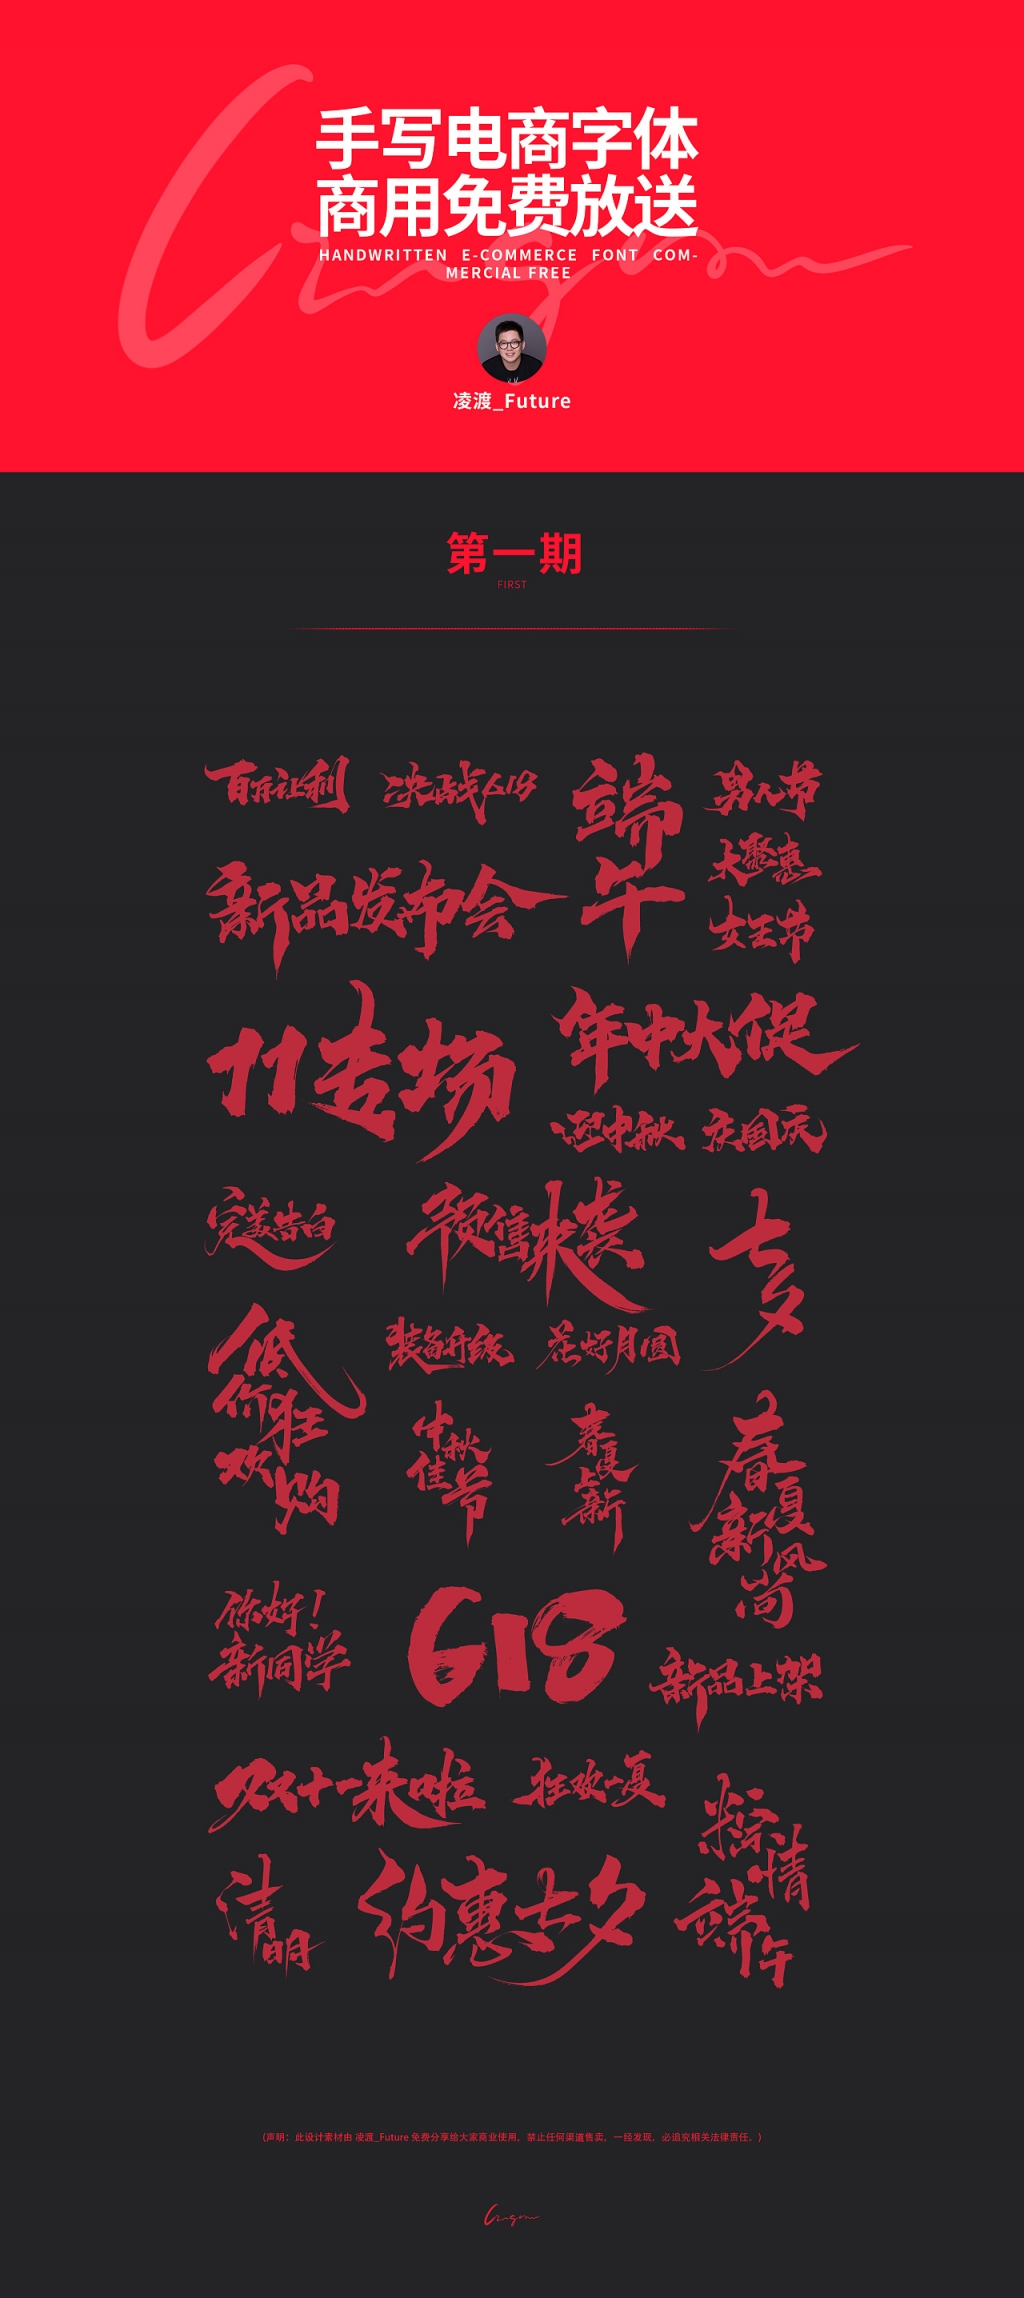 手写电商字体
商用免费放送
HANDWRITTEN E-COMMERCE FONT COM-
MERCIAL FREE
凌渡_Future
第一期
FIRST
百万让利
决战618
端
午
男人节
大聚惠
女王节
新品发布会
11专场
年中大促
迎中秋 庆国庆
完美告白
预售来袭
七
夕
低
价狂
欢
购
装备升级
花好月圆
中秋
佳节
春
夏
上
新
春
夏
新风
尚
你好！
新同学
618
新品上架
双十一来啦
狂欢一夏
粽
情
端
午
清
明
约惠七夕
(声明：此设计素材由 凌渡_Future 免费分享给大家商业使用，禁止任何渠道售卖，一经发现，必追究相关法律责任。)